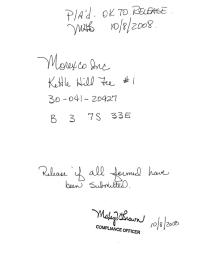 P/A'd. OK TO RELEASE
10/8/2008
Morexco Inc
Kettle Hill Fee #1
30-041-20427
B 3 7S 33E
Release if all forms have
been Submitted.
Brown 10/8/2008
COMPLIANCE OFFICER